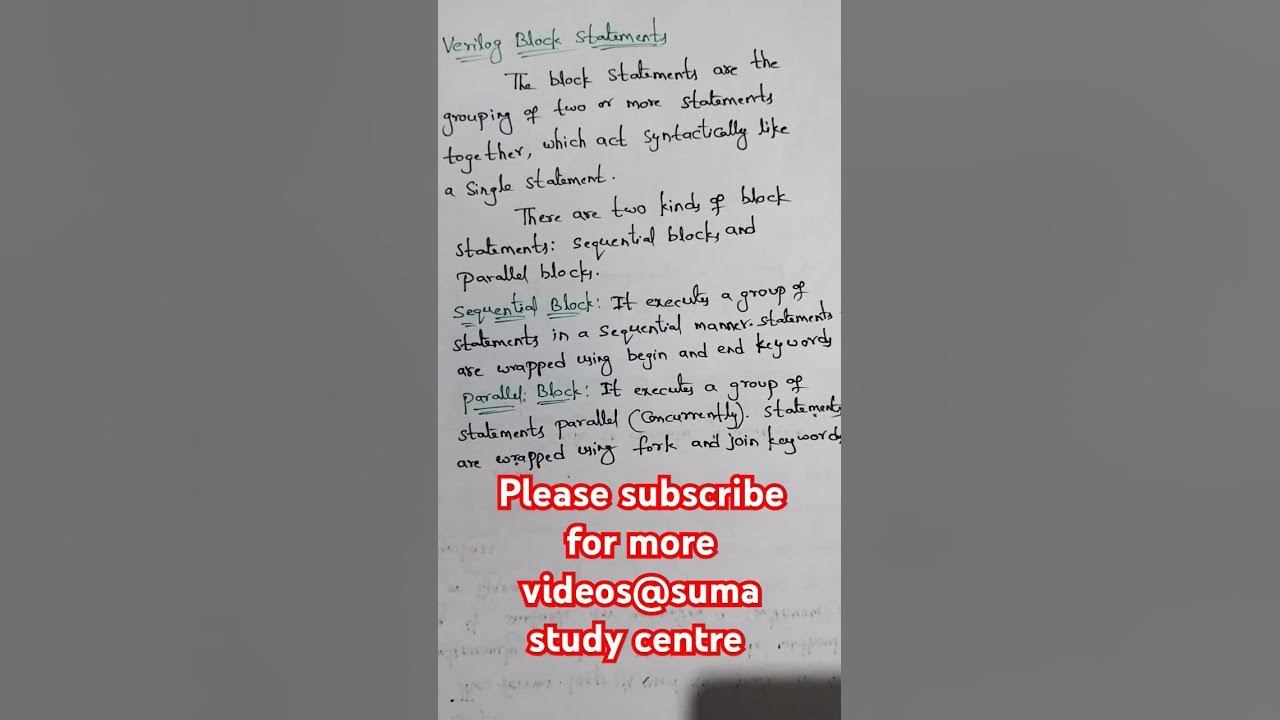 Verilog Block Statements
The block statements are the
grouping of two or more statements
together, which act syntactically like
a single statement.
There are two kinds of block
statements: sequential blocks and
parallel blocks.
Sequential Block: It executes a group of
statements in a sequential manner. statements
are wrapped using begin and end keywords
parallel: Block: It executes a group of
statements parallel (concurrently). statements
are wrapped using fork and join keywords
Please subscribe
for more
videos@suma
study centre